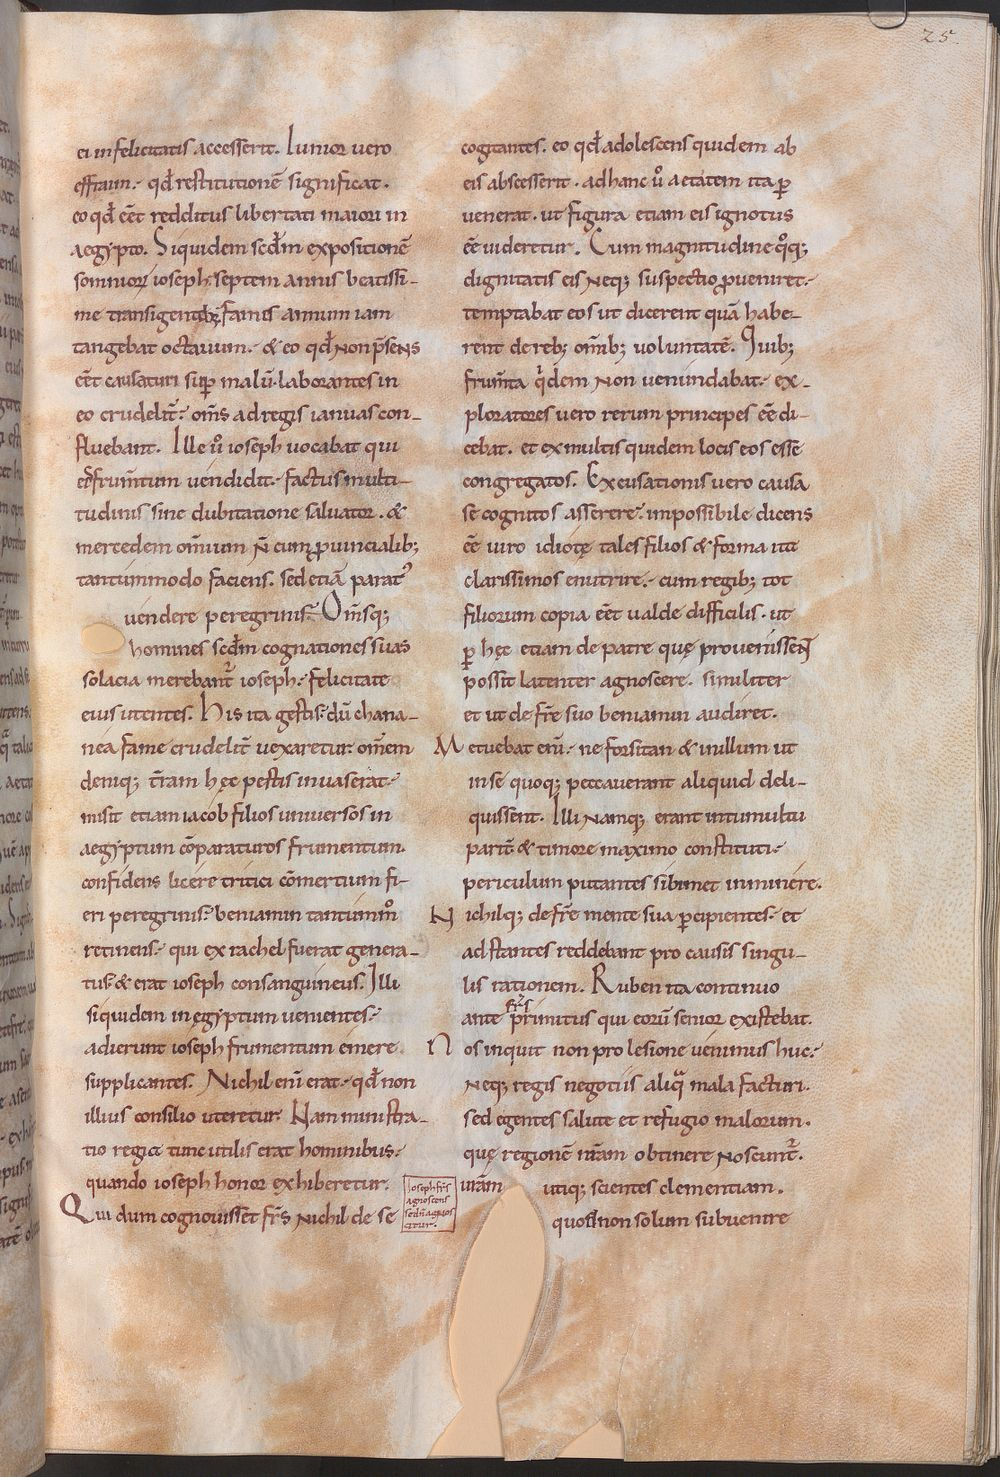 25
ei infelicitatis accesserit. Iunior uero
effraim. qđ restitutionē significat.
eo qđ eēt redditus libertati maiori in
aegypto. Siquidem scđm expositionē
somniorᷓ ioseph septem annis beatissi-
me transigentibꝫ famis annum iam
tangebat octauum. & eo qđ non p̄sens
eēt causaturi sup malū laborantes in
eo crudelit̄. om̄s ad regis ianuas con-
fluebant. Ille ů ioseph uocabat qui
eis frum̄tum uendidit. factus multi-
tudinis sine dubitatione saluator. &
mercedem om̄ium n̄ cum ꝓuincialibꝫ
tantummodo faciens. sed etiā parat᾿
uendere peregrinis. Om̄isqꝫ
homines scđm cognationes suas
solacia merebant᷑ ioseph. felicitate
eius utentes. His ita gestis dū chana-
nea fame crudelit̄ uexaretur. om̄em
deniqꝫ t̄ram hęc pestis inuaserat.
misit etiam iacob filios uniuersos in
aegyptum cōparaturos frumentum.
confidens licere tritici cōmertium fi-
eri peregrinis. beniamin tantum̄m̊
retinens. qui ex rachel fuerat genera-
tus. & erat ioseph consanguineus. Illi
siquidem in ęgyptum uenientes.
adierunt ioseph frumentum emere
supplicantes. Nichil eni erat. qđ non
illius consilio uteretur. Nam ministra-
tio regia tunc utilis erat hominibus.
quando ioseph honor exhiberetur.
Qui dum cognouisset fr̄s nichil de se
Ioseph fr̄s
agnoscens
sed n̄ agnos
citur.
cogitantes. eo qđ adolescens quidem ab
eis abscesserit. ad hanc ů aetatem ita ꝑ
uenerat. ut figura etiam eis ignotus
eē uideretur. Cum magnitudine qͦqꝫ
dignitatis eis neqꝫ suspectio ꝓueniret.
temptabat eos ut dicerent quā habe-
rent de rebꝫ om̄ibꝫ uoluntatē. Quibꝫ
frum̄ta qͥdem non uenundabat. ex-
ploratores uero rerum principes eē di-
cebat. et ex multis quidem locis eos esse
congregatos. Excusationis uero causa
se cognitos asserere. impossibile dicens
eē uiro idiotę tales filios & forma ita
clarissimos enutrire. cum regibꝫ tot
filiorum copia eēt ualde difficilis. ut
ꝑ hęc etiam de patre quę prouenissent
possit latenter agnoscere. similiter
et ut de fr̄e suo beniamin audiret.
Metuebat eni. ne forsitan & in illum ut
in se quoqꝫ peccauerant aliquid deli-
quissent. Illi namqꝫ erant in tumultu
parit̄ & timore maximo constituti.
periculum putantes sibimet inminere.
Nichilqꝫ de fr̄e mente sua ꝑcipientes. et
ad stantes reddebant pro causis singu-
lis rationem. Ruben ita continuo
ante fr̄s primitus qui eorū senior existebat.
Nos inquit non pro lesione uenimus huc.
Neqꝫ regis negotiis aliqͣ mala facturi.
sed egentes salute et refugio malorum.
quę regionē nr̄am obtinere noscunt᷑.
ur̄am utiqꝫ scientes clementiam.
quod non solum subuenire